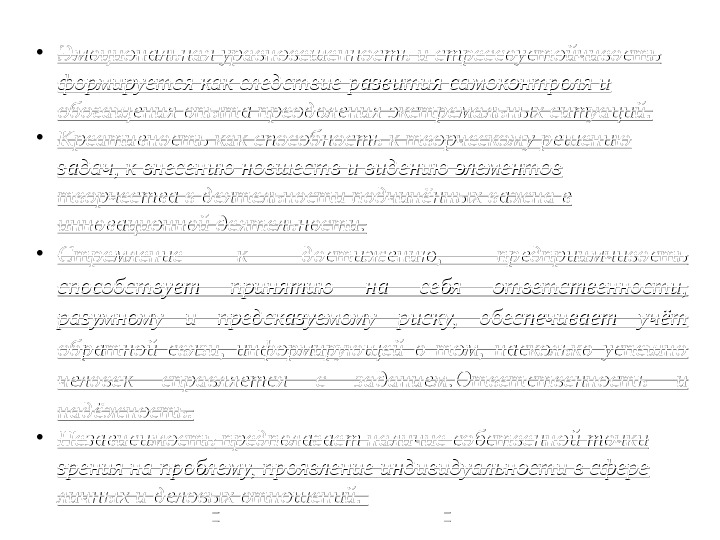 • Эмоциональная уравновешенность и стрессоустойчивость
формируется как следствие развития самоконтроля и
обогащения опыта преодоления экстремальных ситуаций.
• Креативность как способность к творческому решению
задач, к внесению новшеств и видению элементов
творчества в деятельности подчинённых важна в
инновационной деятельности.
• Стремление к достижению, предприимчивость
способствует принятию на себя ответственности,
разумному и предсказуемому риску, обеспечивает учёт
обратной связи, информирующей о том, насколько успешно
человек справляется с заданием.Ответственность и
надёжность.
• Независимость предполагает наличие собственной точки
зрения на проблему, проявление индивидуальности в сфере
личных и деловых отношений.